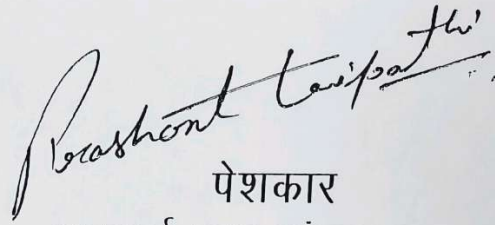 Prashant Tripathi
पेशकार